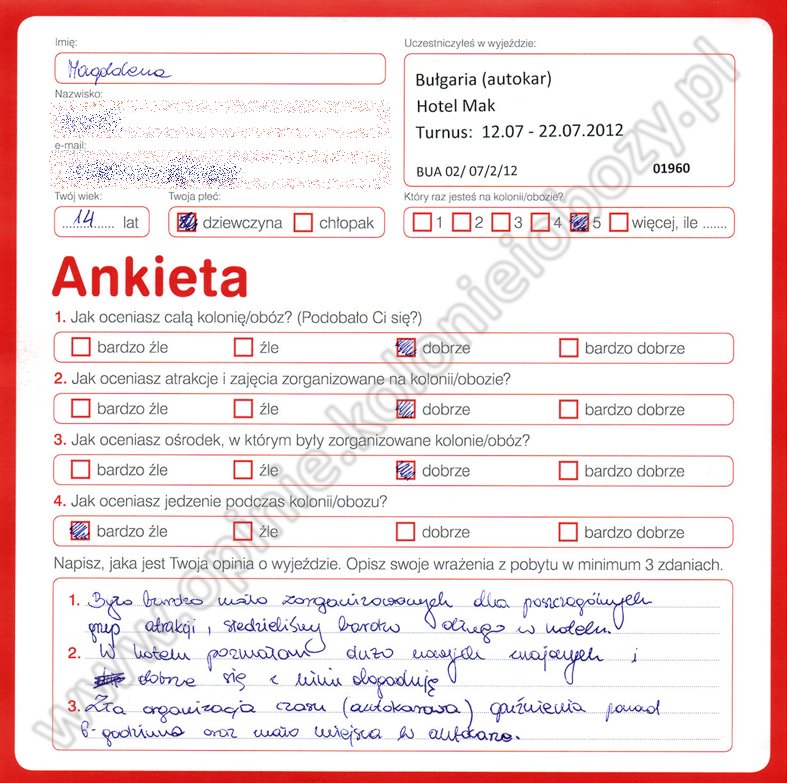 Imię:
Magddena
Nazwisko:
e-mail:
Twój wiek:
14 lat
Twoja płeć:
dziewczyna chłopak
Uczestniczyłeś w wyjeździe:
Bułgaria (autokar)
Hotel Mak
Turnus: 12.07 - 22.07.2012
BUA 02/ 07/2/12 01960
Który raz jesteś na kolonii/obozie?
1 2 3 4 5 więcej, ile .......
Ankieta
1. Jak oceniasz całą kolonię/obóz? (Podobało Ci się?)
bardzo źle źle dobrze bardzo dobrze
2. Jak oceniasz atrakcje i zajęcia zorganizowane na kolonii/obozie?
bardzo źle źle dobrze bardzo dobrze
3. Jak oceniasz ośrodek, w którym były zorganizowane kolonie/obóz?
bardzo źle źle dobrze bardzo dobrze
4. Jak oceniasz jedzenie podczas kolonii/obozu?
bardzo źle źle dobrze bardzo dobrze
Napisz, jaka jest Twoja opinia o wyjeździe. Opisz swoje wrażenia z pobytu w minimum 3 zdaniach.
1. Było bardzo mało zorganizowanych dla poszczególnych
grup atrakcji, siedzieliśmy bardzo długo w hotelu.
2. W hotelu poznałam dużo nowych znajomych i
dobrze się z nimi dogaduję
3. Zła organizacja czasu (autokarowa) późnienia ponad
6-godzinne oraz mało miejsca w autokarze.
www.opinie.kolonieiobozy.pl